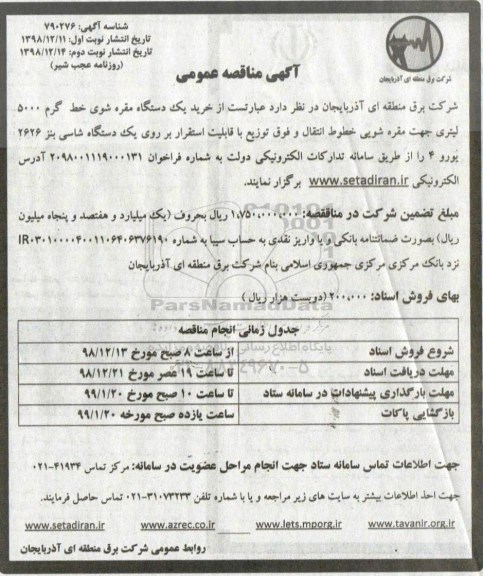 شناسه آگهی: ۷۹۰۲۷۶
تاریخ انتشار نوبت اول: ۱۳۹۸/۱۲/۱۱
تاریخ انتشار نوبت دوم: ۱۳۹۸/۱۲/۱۴
(روزنامه عجب شیر)
شرکت برق منطقه ای آذربایجان
آگهی مناقصه عمومی
شرکت برق منطقه ای آذربایجان در نظر دارد عبارتست از خرید یک دستگاه مقره شوی خط گرم ۵۰۰۰
لیتری جهت مقره شویی خطوط انتقال و فوق توزیع با قابلیت استقرار بر روی یک دستگاه شاسی بنز ۲۶۲۶
یورو ۴ را از طریق سامانه تدارکات الکترونیکی دولت به شماره فراخوان ۲۰۹۸۰۰۱۱۱۹۰۰۰۱۳۱ آدرس
الکترونیکی www.setadiran.ir برگزار نمایند.
مبلغ تضمین شرکت در مناقصه: ۱،۷۵۰،۰۰۰،۰۰۰ ریال بحروف (یک میلیارد و هفتصد و پنجاه میلیون
ریال) بصورت ضمانتنامه بانکی و یا واریز نقدی به حساب سیبا به شماره IR۰۳۰۱۰۰۰۰۴۰۰۱۱۰۶۴۰۶۳۷۶۱۹۰
نزد بانک مرکزی مرکزی جمهوری اسلامی بنام شرکت برق منطقه ای آذربایجان
بهای فروش اسناد: ۲۰۰،۰۰۰ (دویست هزار ریال)
ParsNamadData
جدول زمانی انجام مناقصه
شروع فروش اسناد از ساعت ۸ صبح مورخ ۹۸/۱۲/۱۳
مهلت دریافت اسناد تا ساعت ۱۹ عصر مورخ ۹۸/۱۲/۲۱
مهلت بارگذاری پیشنهادات در سامانه ستاد تا ساعت ۱۰ صبح مورخ ۹۹/۱/۲۰
بازگشایی پاکات ساعت یازده صبح مورخه ۹۹/۱/۲۰
جهت اطلاعات تماس سامانه ستاد جهت انجام مراحل عضویت در سامانه: مرکز تماس ۴۱۹۳۴-۰۲۱
جهت اخذ اطلاعات بیشتر به سایت های زیر مراجعه و یا با شماره تلفن ۳۱۰۷۳۲۳۳-۰۲۱ تماس حاصل فرمایند.
www.tavanir.org.ir www.lets.mporg.ir www.azrec.co.ir www.setadiran.ir
روابط عمومی شرکت برق منطقه ای آذربایجان